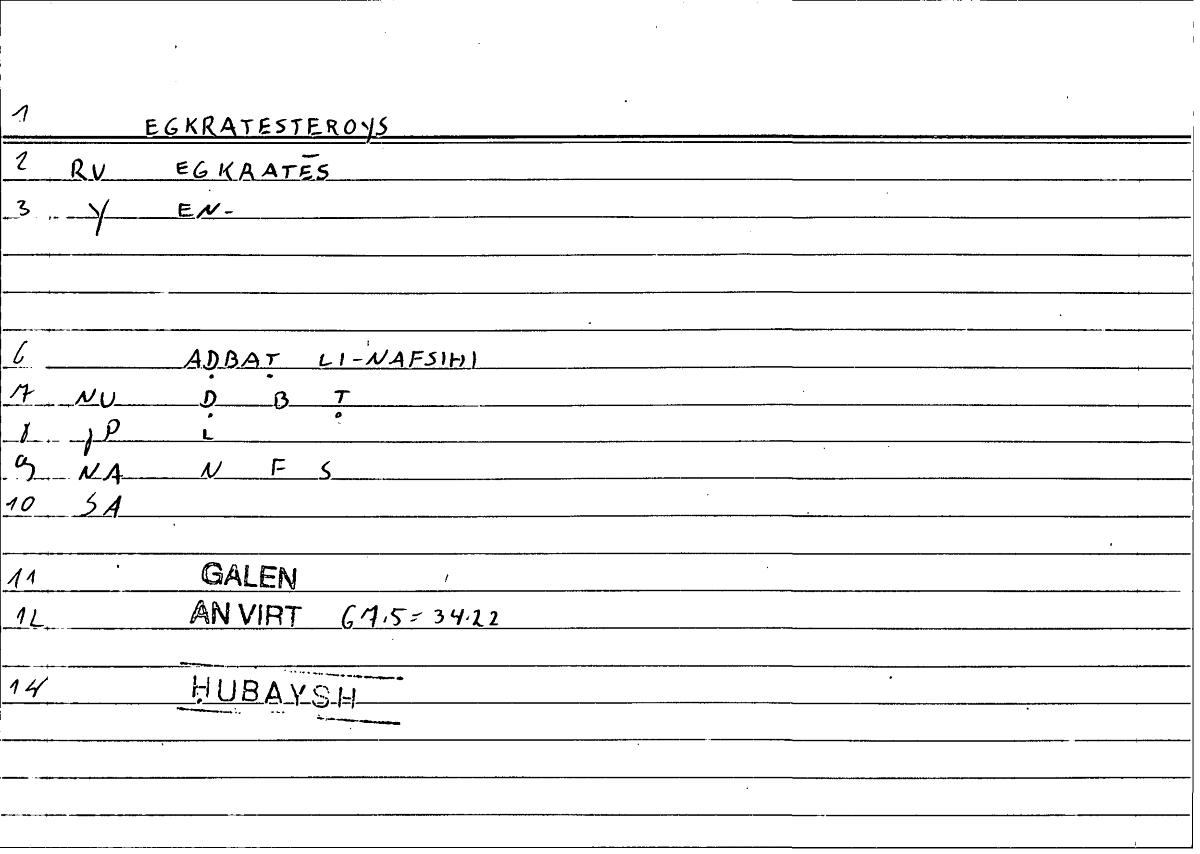 1 EGKRATESTEROYS
2 RV EGKRATĒS
3 Y EN-
6 AḌBAṬ LI-NAFSIHI
7 NU Ḍ B Ṭ
8 JP L
9 NA N F S
10 SA
11 GALEN
12 AN VIRT 67.5 = 34.22
14 ḤUBAYSH